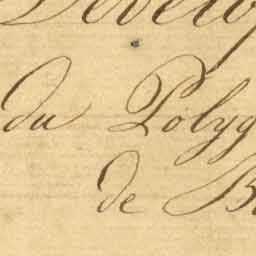 Develop
du Polyg
de B